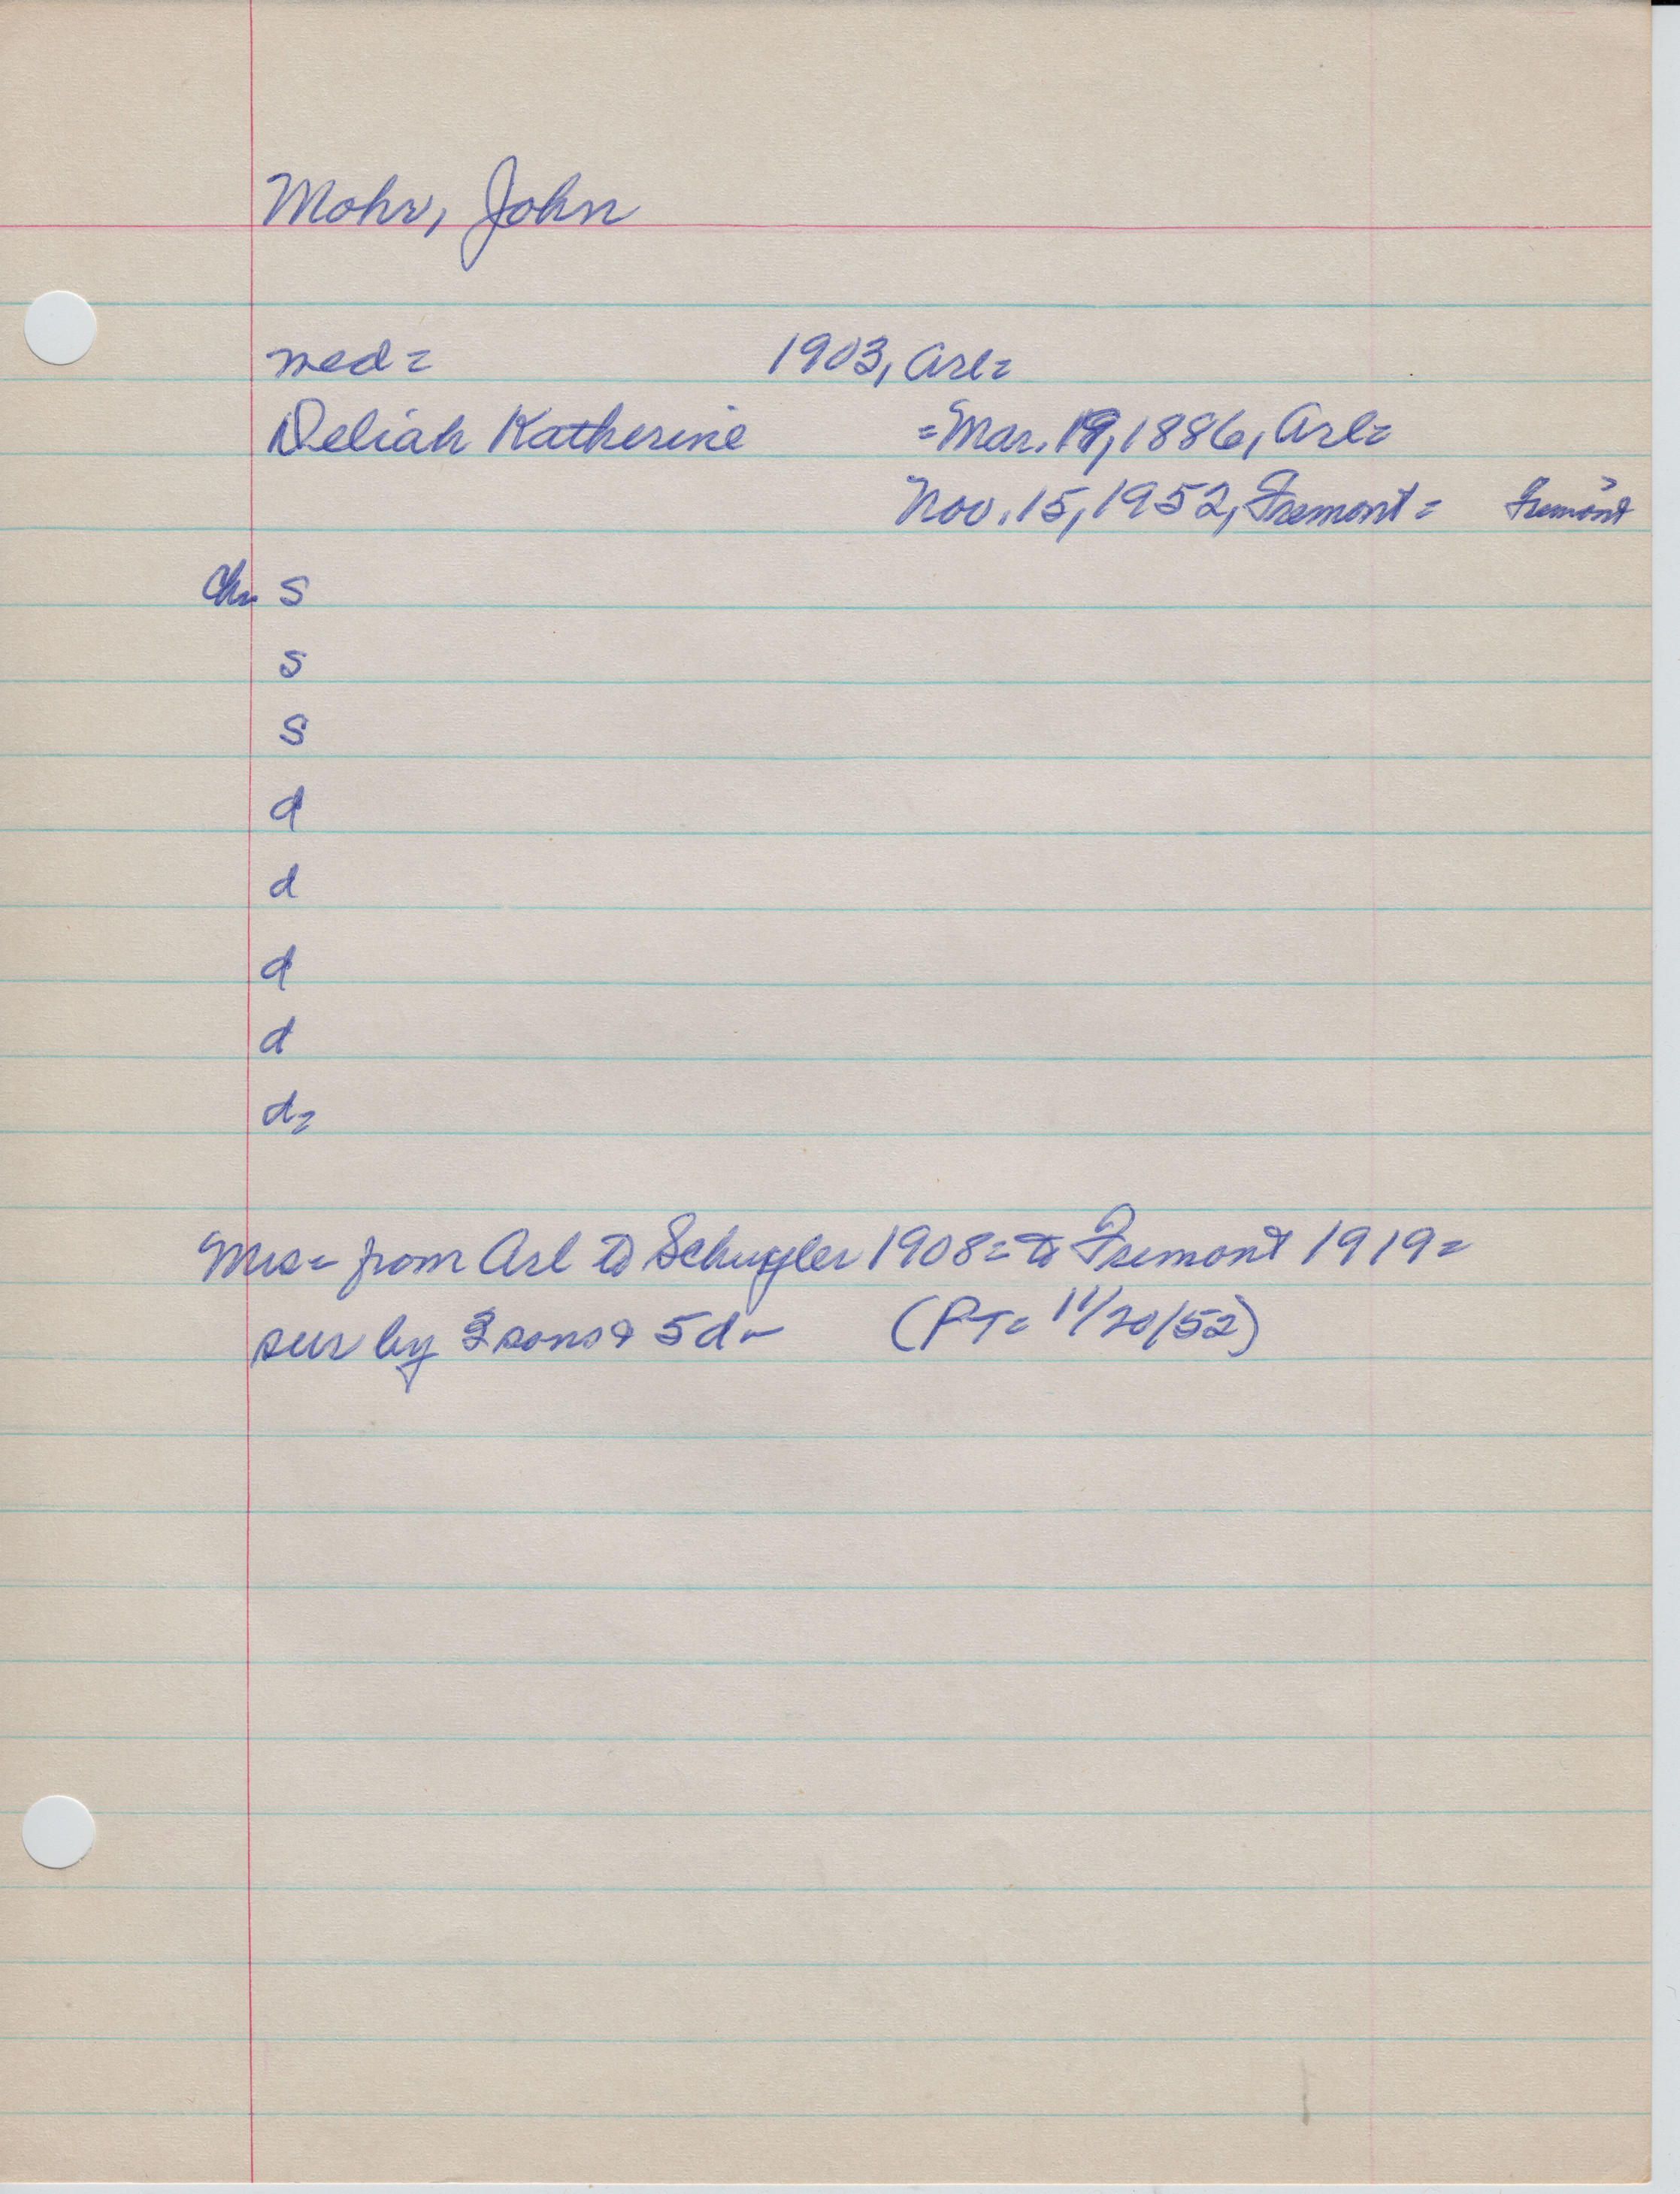 Mohr, John
med= 1903, Arl=
Deliah Katherine =Mar. 19, 1886, Arl=
Nov. 15, 1952, Fremont= Fremont
Ch= s
s
s
d
d
d
d
d=
Mrs= from Arl to Schuyler 1908= to Fremont 1919=
sur by 3 sons & 5 d- (PT= 11/20/52)